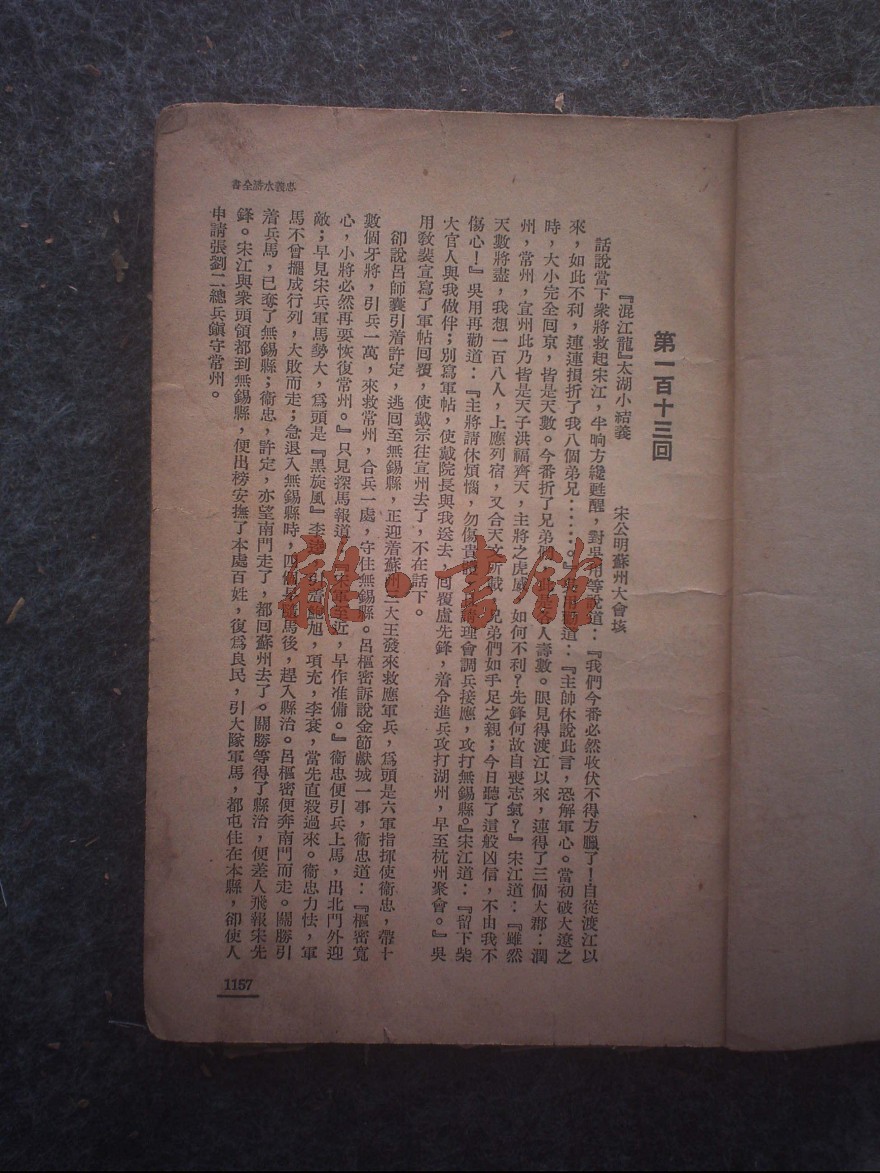 第一百十三回
『混江龍』太湖小結義　宋公明蘇州大會垓
話說當下衆將救起宋江，半晌方纔甦醒，對吳用等說道：『我們今番必然收伏不得方臘了！自從渡江以
來，如此不利，連連損折了我八個弟兄……。』吳用勸道：『主帥休說此言，恐解軍心。當初破大遼之
時，大小完全囘京，皆是天數。今番折了兄弟們，此是各人壽數。眼見得渡江以來，連得了三個大郡：潤
州，常州，宣州此乃皆是天子洪福齊天，主將之虎威，如何不利？先鋒何故自喪志氣？』宋江道：『雖然
天數將盡，我想一百八人，上應列宿，又合天文所載，兄弟們如手足之親；今日聽了這般凶信，不由我不
傷心！』吳用再勸道：『主將請休煩惱，勿傷貴體。且請理會調兵接應，攻打無錫縣。』宋江道：『留下柴
大官人與我做伴；別寫軍帖，使戴院長與我送去，囘覆盧先鋒，着令進兵攻打湖州，早至杭州聚會。』吳
用敎裴宣寫了軍帖囘覆，使戴宗往宣州去了，不在話下。
卻說呂師囊引着許定，逃囘至無錫縣，正迎着蘇州三大王發來救應軍兵，爲頭是六軍指揮使衞忠，帶十
數個牙將，引兵一萬，來救常州，合兵一處，守住無錫縣。呂樞密訴說金節獻城一事，衞忠道：『樞密寬
心，小將必然再要恢復常州。』只見探馬報道：『宋軍至近，早作准備。』衞忠便引兵上馬，出北門外迎
敵；早見宋兵軍馬勢大，爲頭是『黑旋風』李逵，引着鮑旭，項充，李袞，當先直殺過來。衞忠力怯，軍
馬不曾擺成行列，大敗而走；急退入無錫縣時，四個早隨馬後，趕入縣治。呂樞密便奔南門而走。關勝引
着兵馬，已奪了無錫縣；衞忠，許定，亦望南門走了，都囘蘇州去了。關勝等得了縣治，便差人飛報宋先
鋒。宋江與衆頭領都到無錫縣，便出榜安撫了本處百姓，復爲良民，引大隊軍馬，都屯住在本縣，卻使人
申請張劉二總兵鎭守常州。
忠義水滸全書
1157
雜·書館